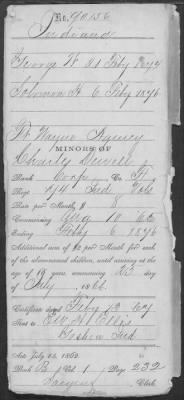 No. 90,136
Indiana
George W 21 Feby 1874
Solomon H 6 Feby 1876
Ft Wayne Agency
MINORS OF
Charles Sewell
Rank Corp Co. H
Regt 74 Ind Vols
Rate per Month, $ 8
Commencing Aug 10 65
Ending Feby 6 1876
Additional sum of $2 per Month for each of
the abovenamed children, until arriving at the
age of 16 years, commencing 25 day
of July 1866.
Certificate dated Feby 12 67
Sent to H Ellis
Goshen Ind
Act July 14, 1862.
Book B Vol. 1 Page 232
Clerk.